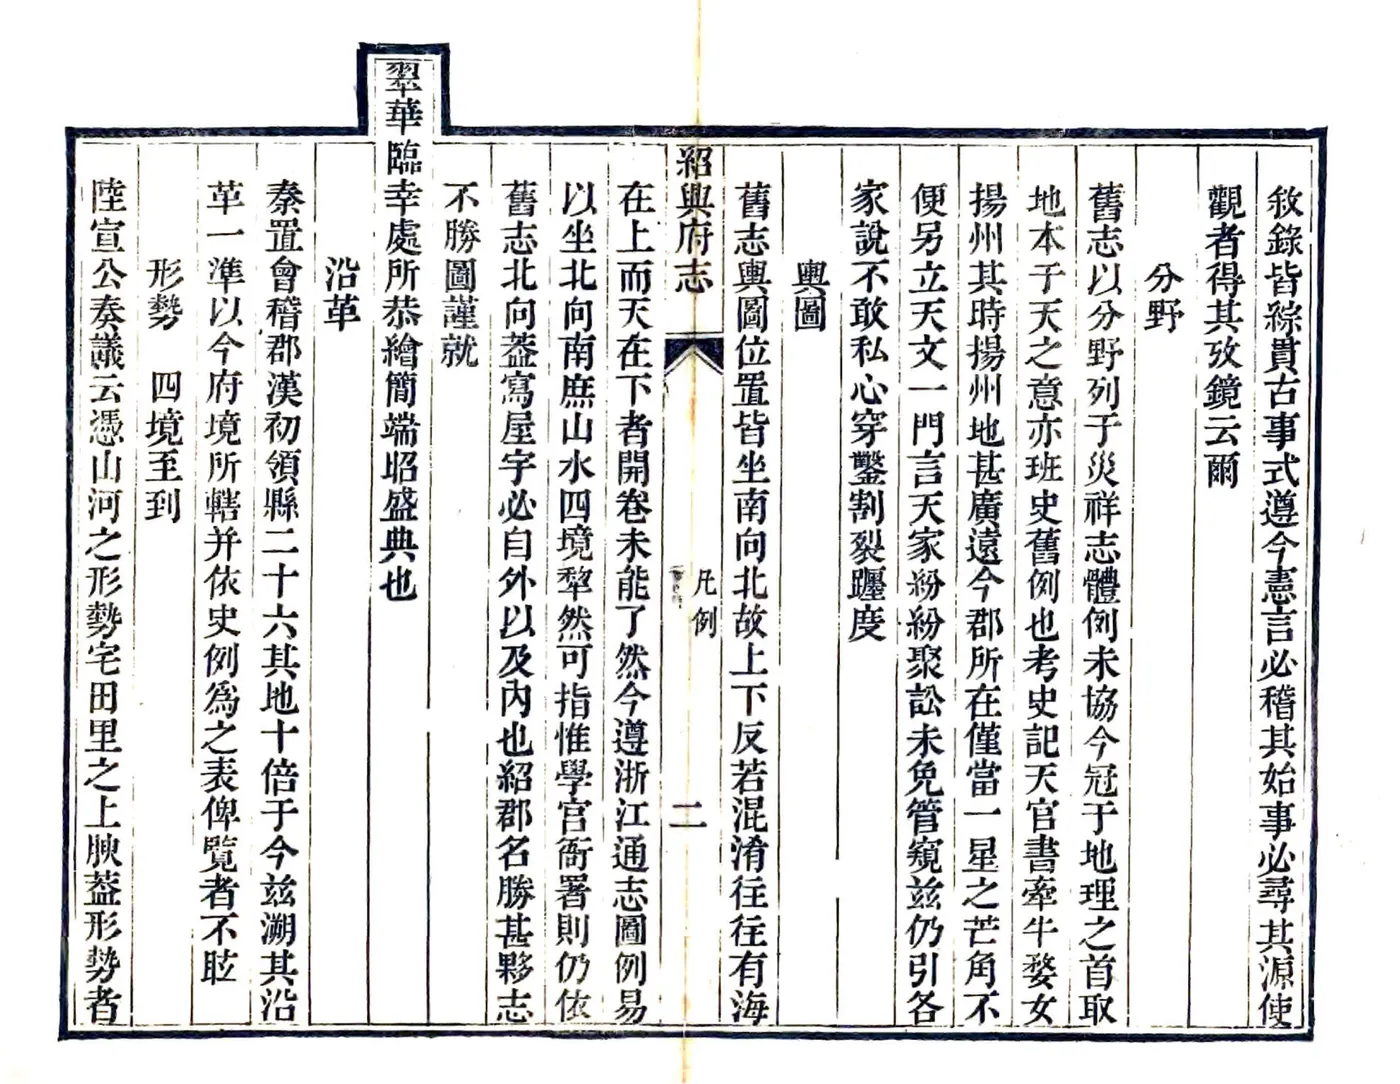 敘錄皆綜貫古事式遵今憲言必稽其始事必尋其源使
觀者得其攷鏡云爾
分野
舊志以分野列于災祥志體例未協今冠于地理之首取
地本于天之意亦班史舊例也考史記天官書牽牛婺女
揚州其時揚州地甚廣遠今郡所在僅當一星之芒角不
便另立天文一門言天家紛紛聚訟未免管窺兹仍引各
家說不敢私心穿鑿割裂躔度
輿圖
舊志輿圖位置皆坐南向北故上下反若混淆往往有海
紹興府志
凡例
二
在上而天在下者開卷未能了然今遵浙江通志圖例易
以坐北向南庶山水四境犂然可指惟學宮衙署則仍依
舊志北向葢寫屋字必自外以及內也紹郡名勝甚夥志
不勝圖謹就
翠華臨幸處所恭繪簡端昭盛典也
沿革
秦置會稽郡漢初領縣二十六其地十倍于今兹溯其沿
革一準以今府境所轄并依史例爲之表俾覽者不眩
形勢 四境至到
陸宣公奏議云憑山河之形勢宅田里之上腴葢形勢者